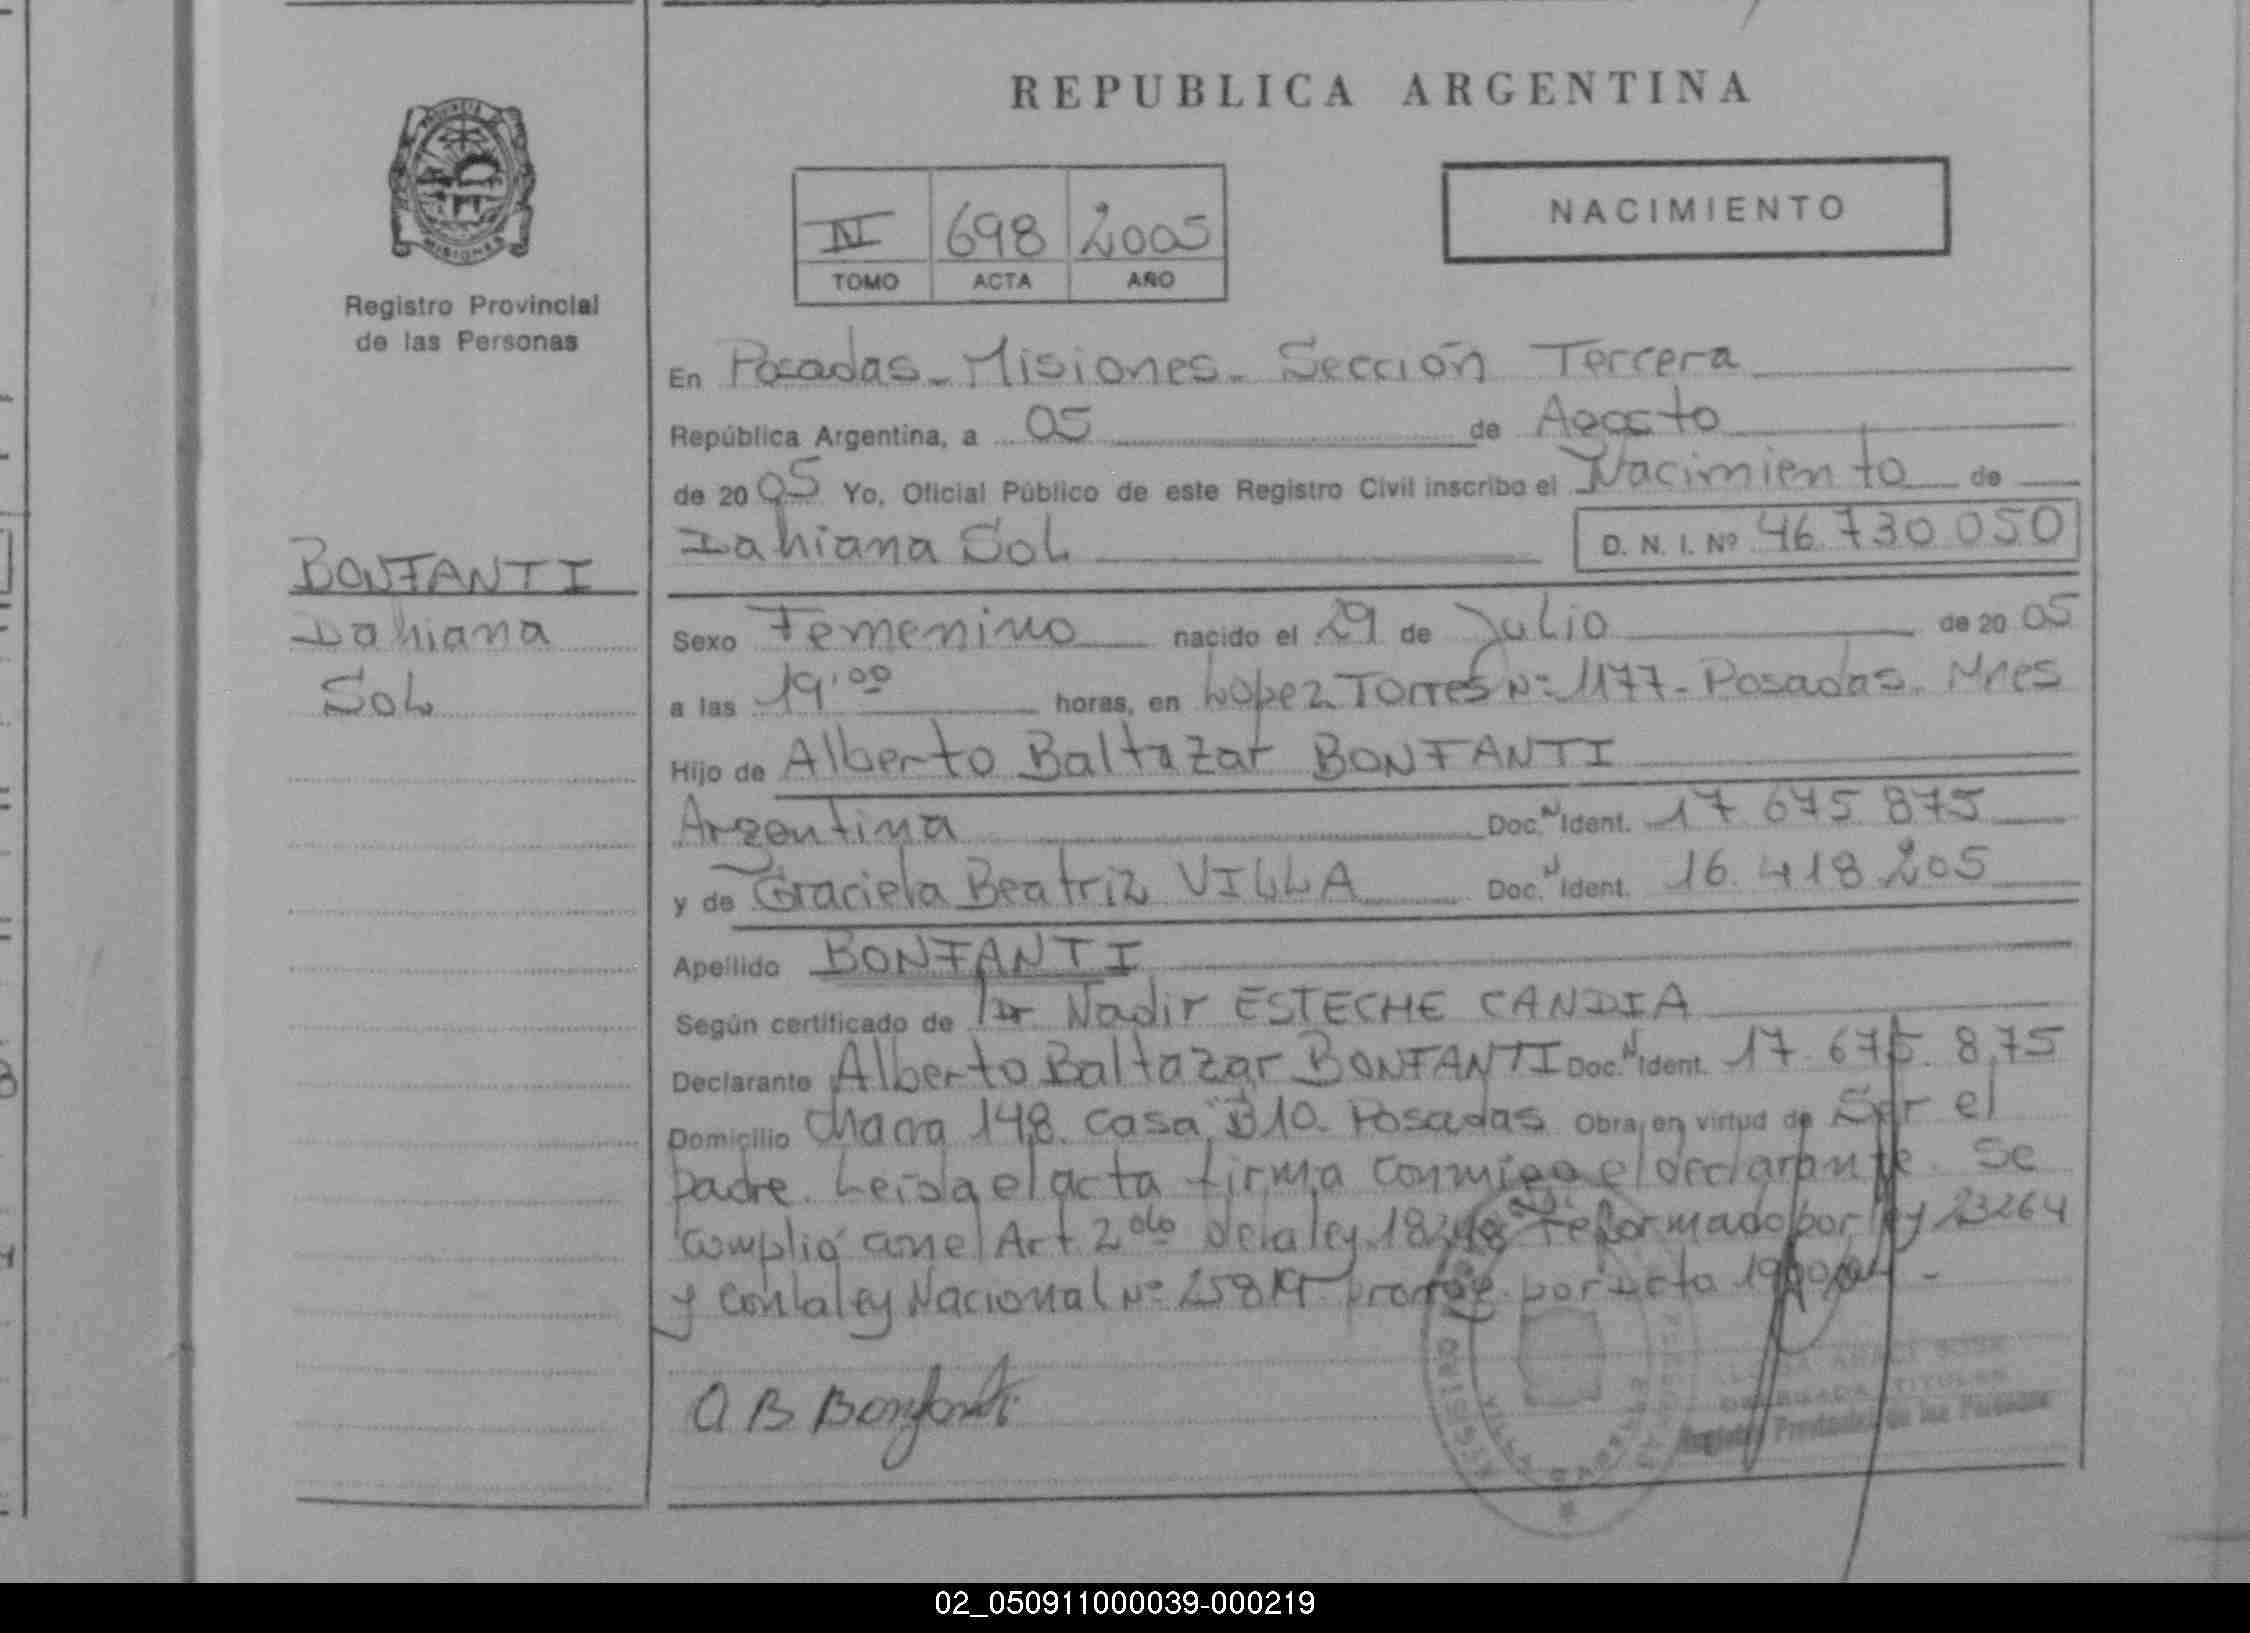 REPUBLICA ARGENTINA
PROVINCIA
MISIONES
Registro Provincial
de las Personas
IV 698 2005
TOMO ACTA AÑO
NACIMIENTO
En Posadas - Misiones - Sección Tercera
República Argentina, a 05 de Agosto
de 2005 Yo, Oficial Público de este Registro Civil inscribo el Nacimiento de
Dahiana Sol D. N. I. Nº 46.730 050
BONFANTI
Dahiana
Sol
Sexo Femenino nacido el 29 de Julio de 2005
a las 19'00 horas, en Lopez Torres Nº 1177 - Posadas - Mnes
Hijo de Alberto Baltazar BONFANTI
Argentina Doc. N Ident. 17 675 875
y de Graciela Beatriz VILLA Doc. N Ident. 16.418 205
Apellido BONFANTI
Según certificado de Dr Nadir ESTECHE CANDIA
Declarante Alberto Baltazar BONFANTI Doc. N Ident. 17.675.875
Domicilio Chacra 148. Casa "B10. Posadas Obra en virtud de Ser el
padre. Leida el acta firma conmigo el declarante. Se
cumplió con el Art 2do de la ley 18248 reformado por ley 23264
y con la ley Nacional Nº por
A B Bonfanti
Registro Provincial de las Personas
02_050911000039-000219